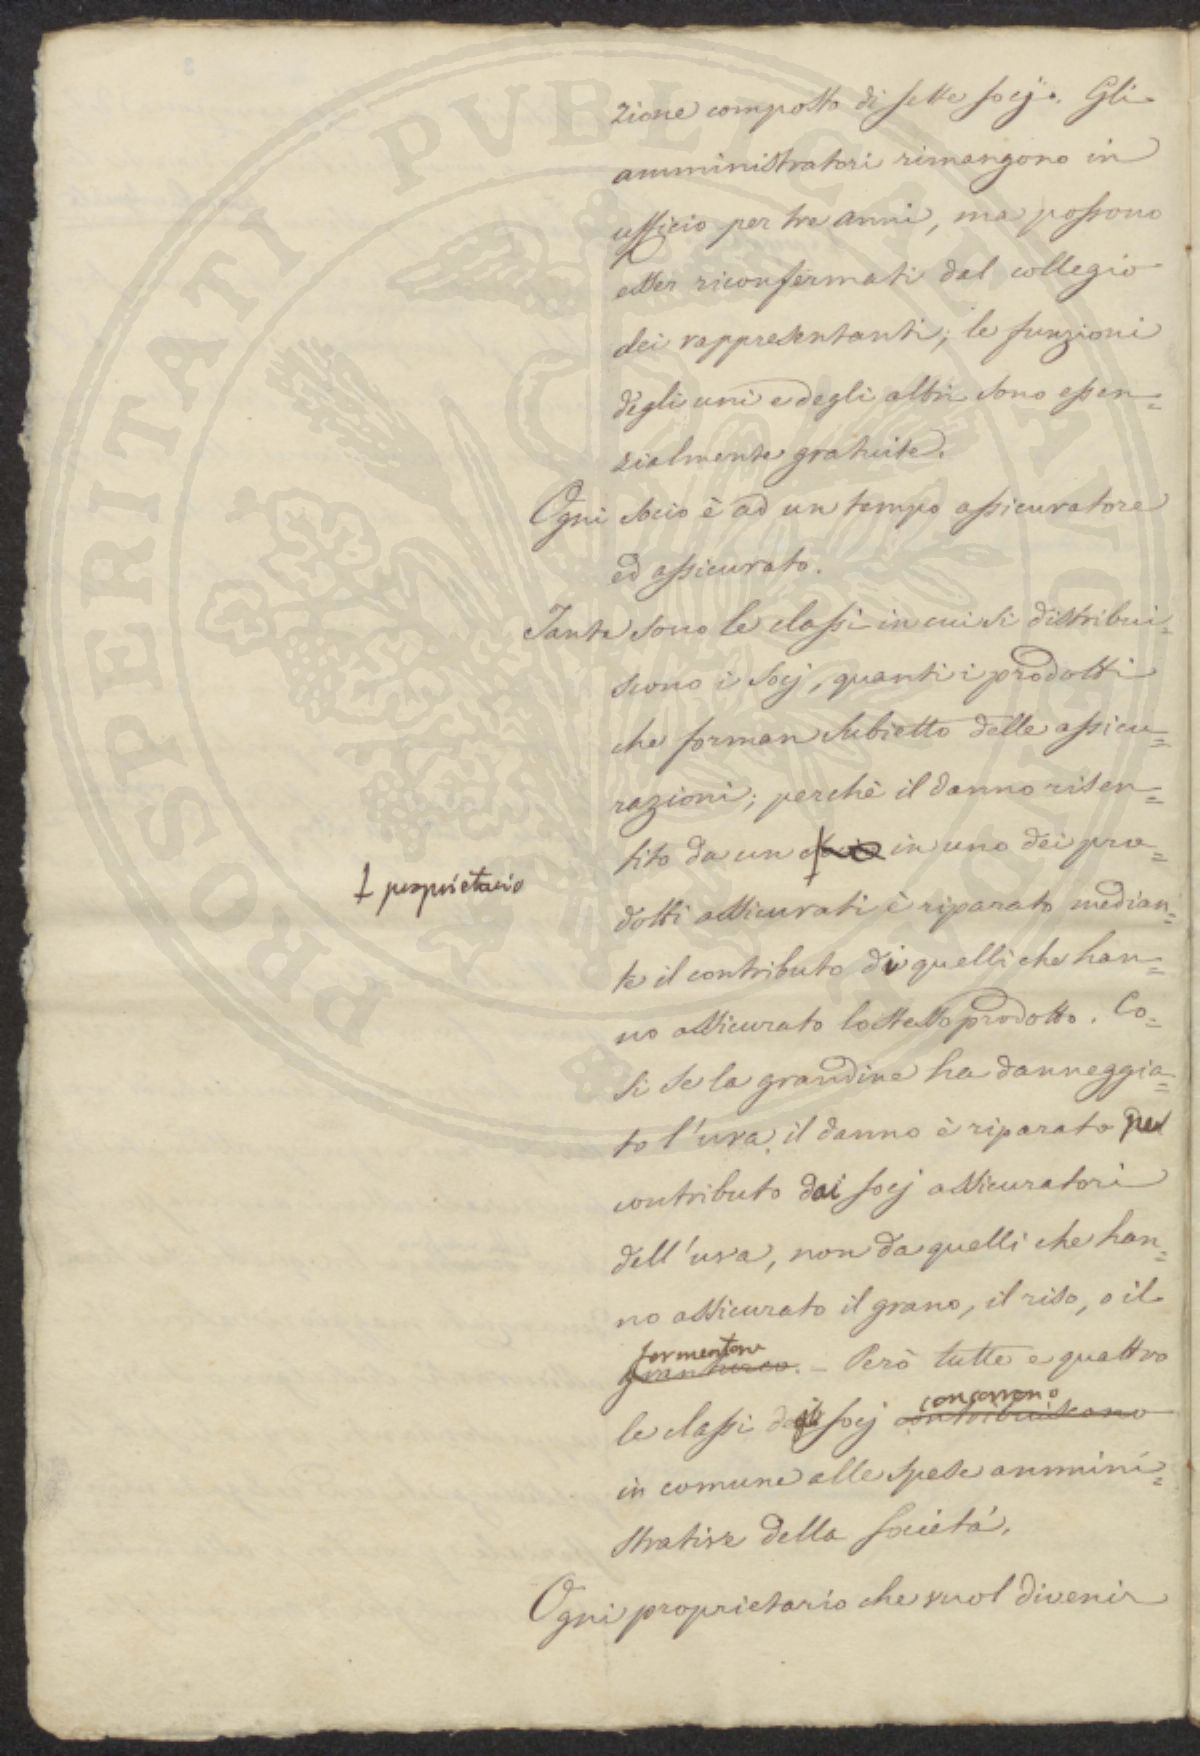 zione composto di sette socj. Gli
amministratori rimangono in
ufficio per tre anni, ma possono
esser riconfermati dal collegio
dei rappresentanti; le funzioni
degli uni e degli altri sono essen=
zialmente gratuite.
Ogni socio è ad un tempo assicuratore
ed assicurato.
Tante sono le classi in cui si distribui=
scono i socj, quanti i prodotti
che forman subietto delle assicu=
razioni; perchè il danno risen=
tito da un socio in uno dei pro=
ꝉ proprietario
dotti assicurati è riparato median=
te il contributo di quelli che han=
no assicurato lo stesso prodotto. Co=
si se la grandine ha danneggia=
to l'uva, il danno è riparato pel
contributo dai socj assicuratori
dell'uva, non da quelli che han=
no assicurato il grano, il riso, o il
formentone
granturco. – Però tutte e quattro
concorrono
le classi degli socj contribuiscono
in comune alle spese ammini=
strative della Società.
Ogni proprietario che vuol divenir
PROSPERITATI PVBLICAE AVGENDAE